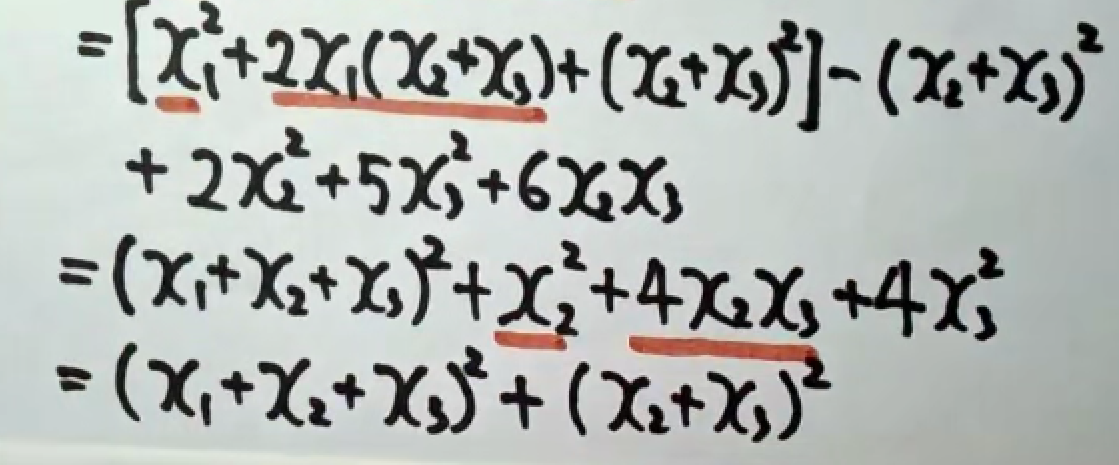 =[x₁²+2x₁(x₂+x₃)+(x₂+x₃)²]-(x₂+x₃)²
+2x₂²+5x₃²+6x₂x₃
=(x₁+x₂+x₃)²+x₂²+4x₂x₃+4x₃²
=(x₁+x₂+x₃)²+(x₂+x₃)²